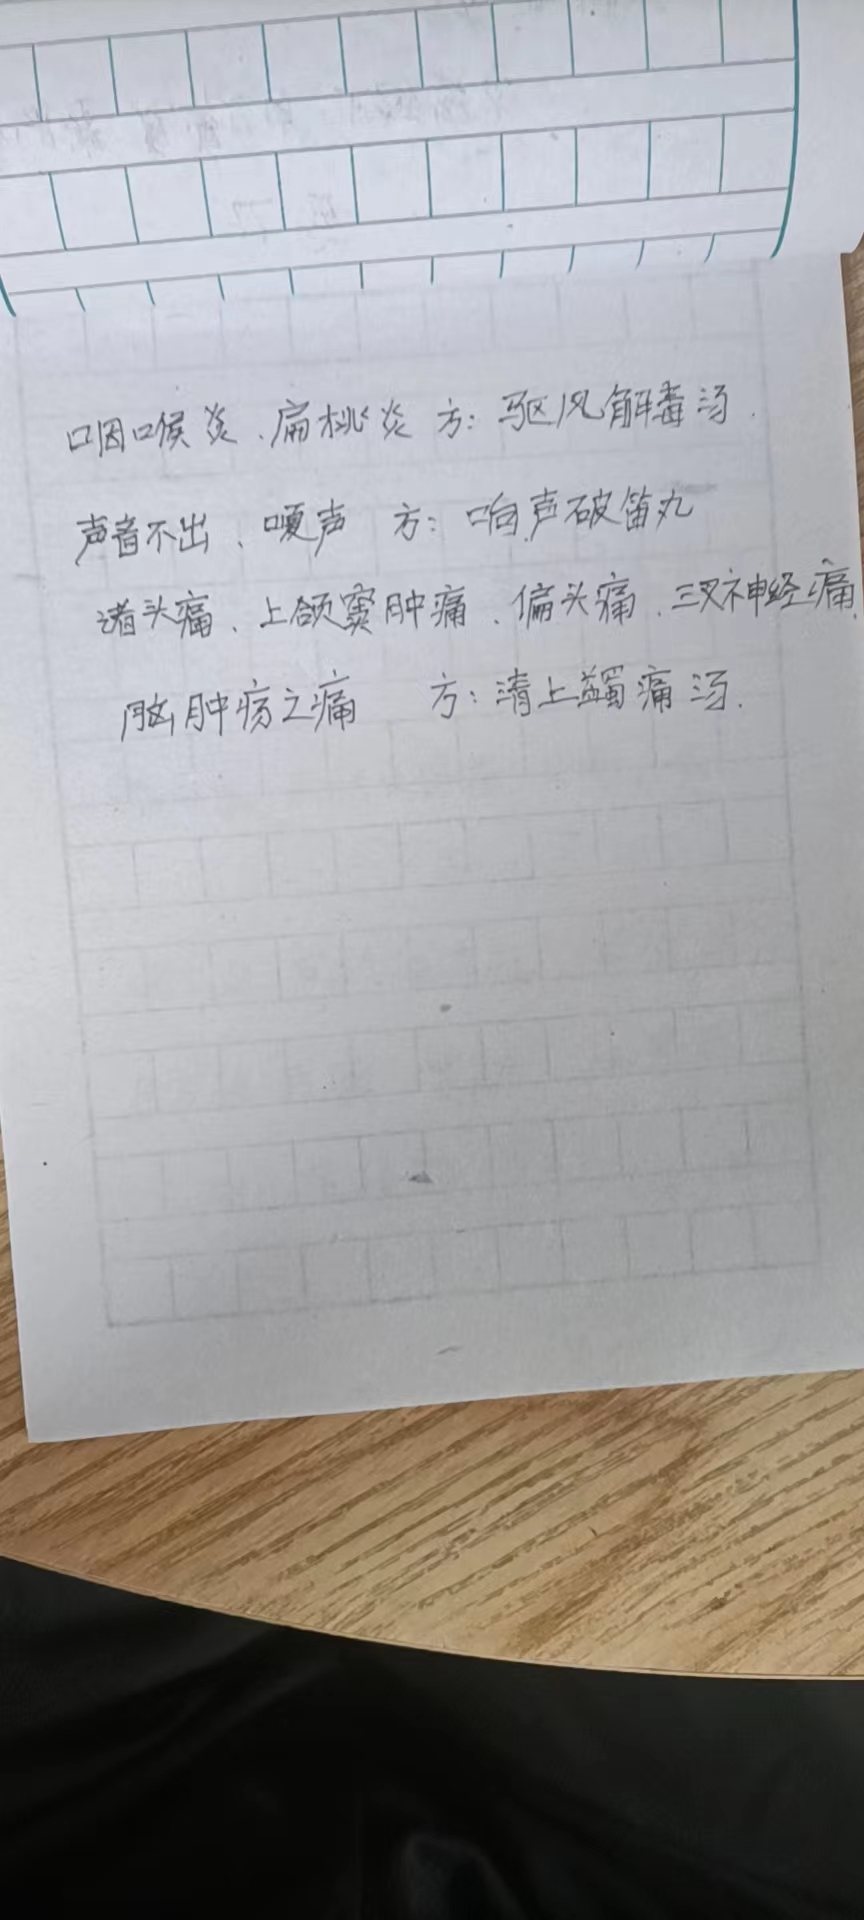 咽喉炎、扁桃炎 方：驱风解毒汤.
声音不出、嗄声 方：响声破笛丸
诸头痛、上颌窦肿痛、偏头痛、三叉神经痛.
脑肿疡之痛 方：清上蠲痛汤.